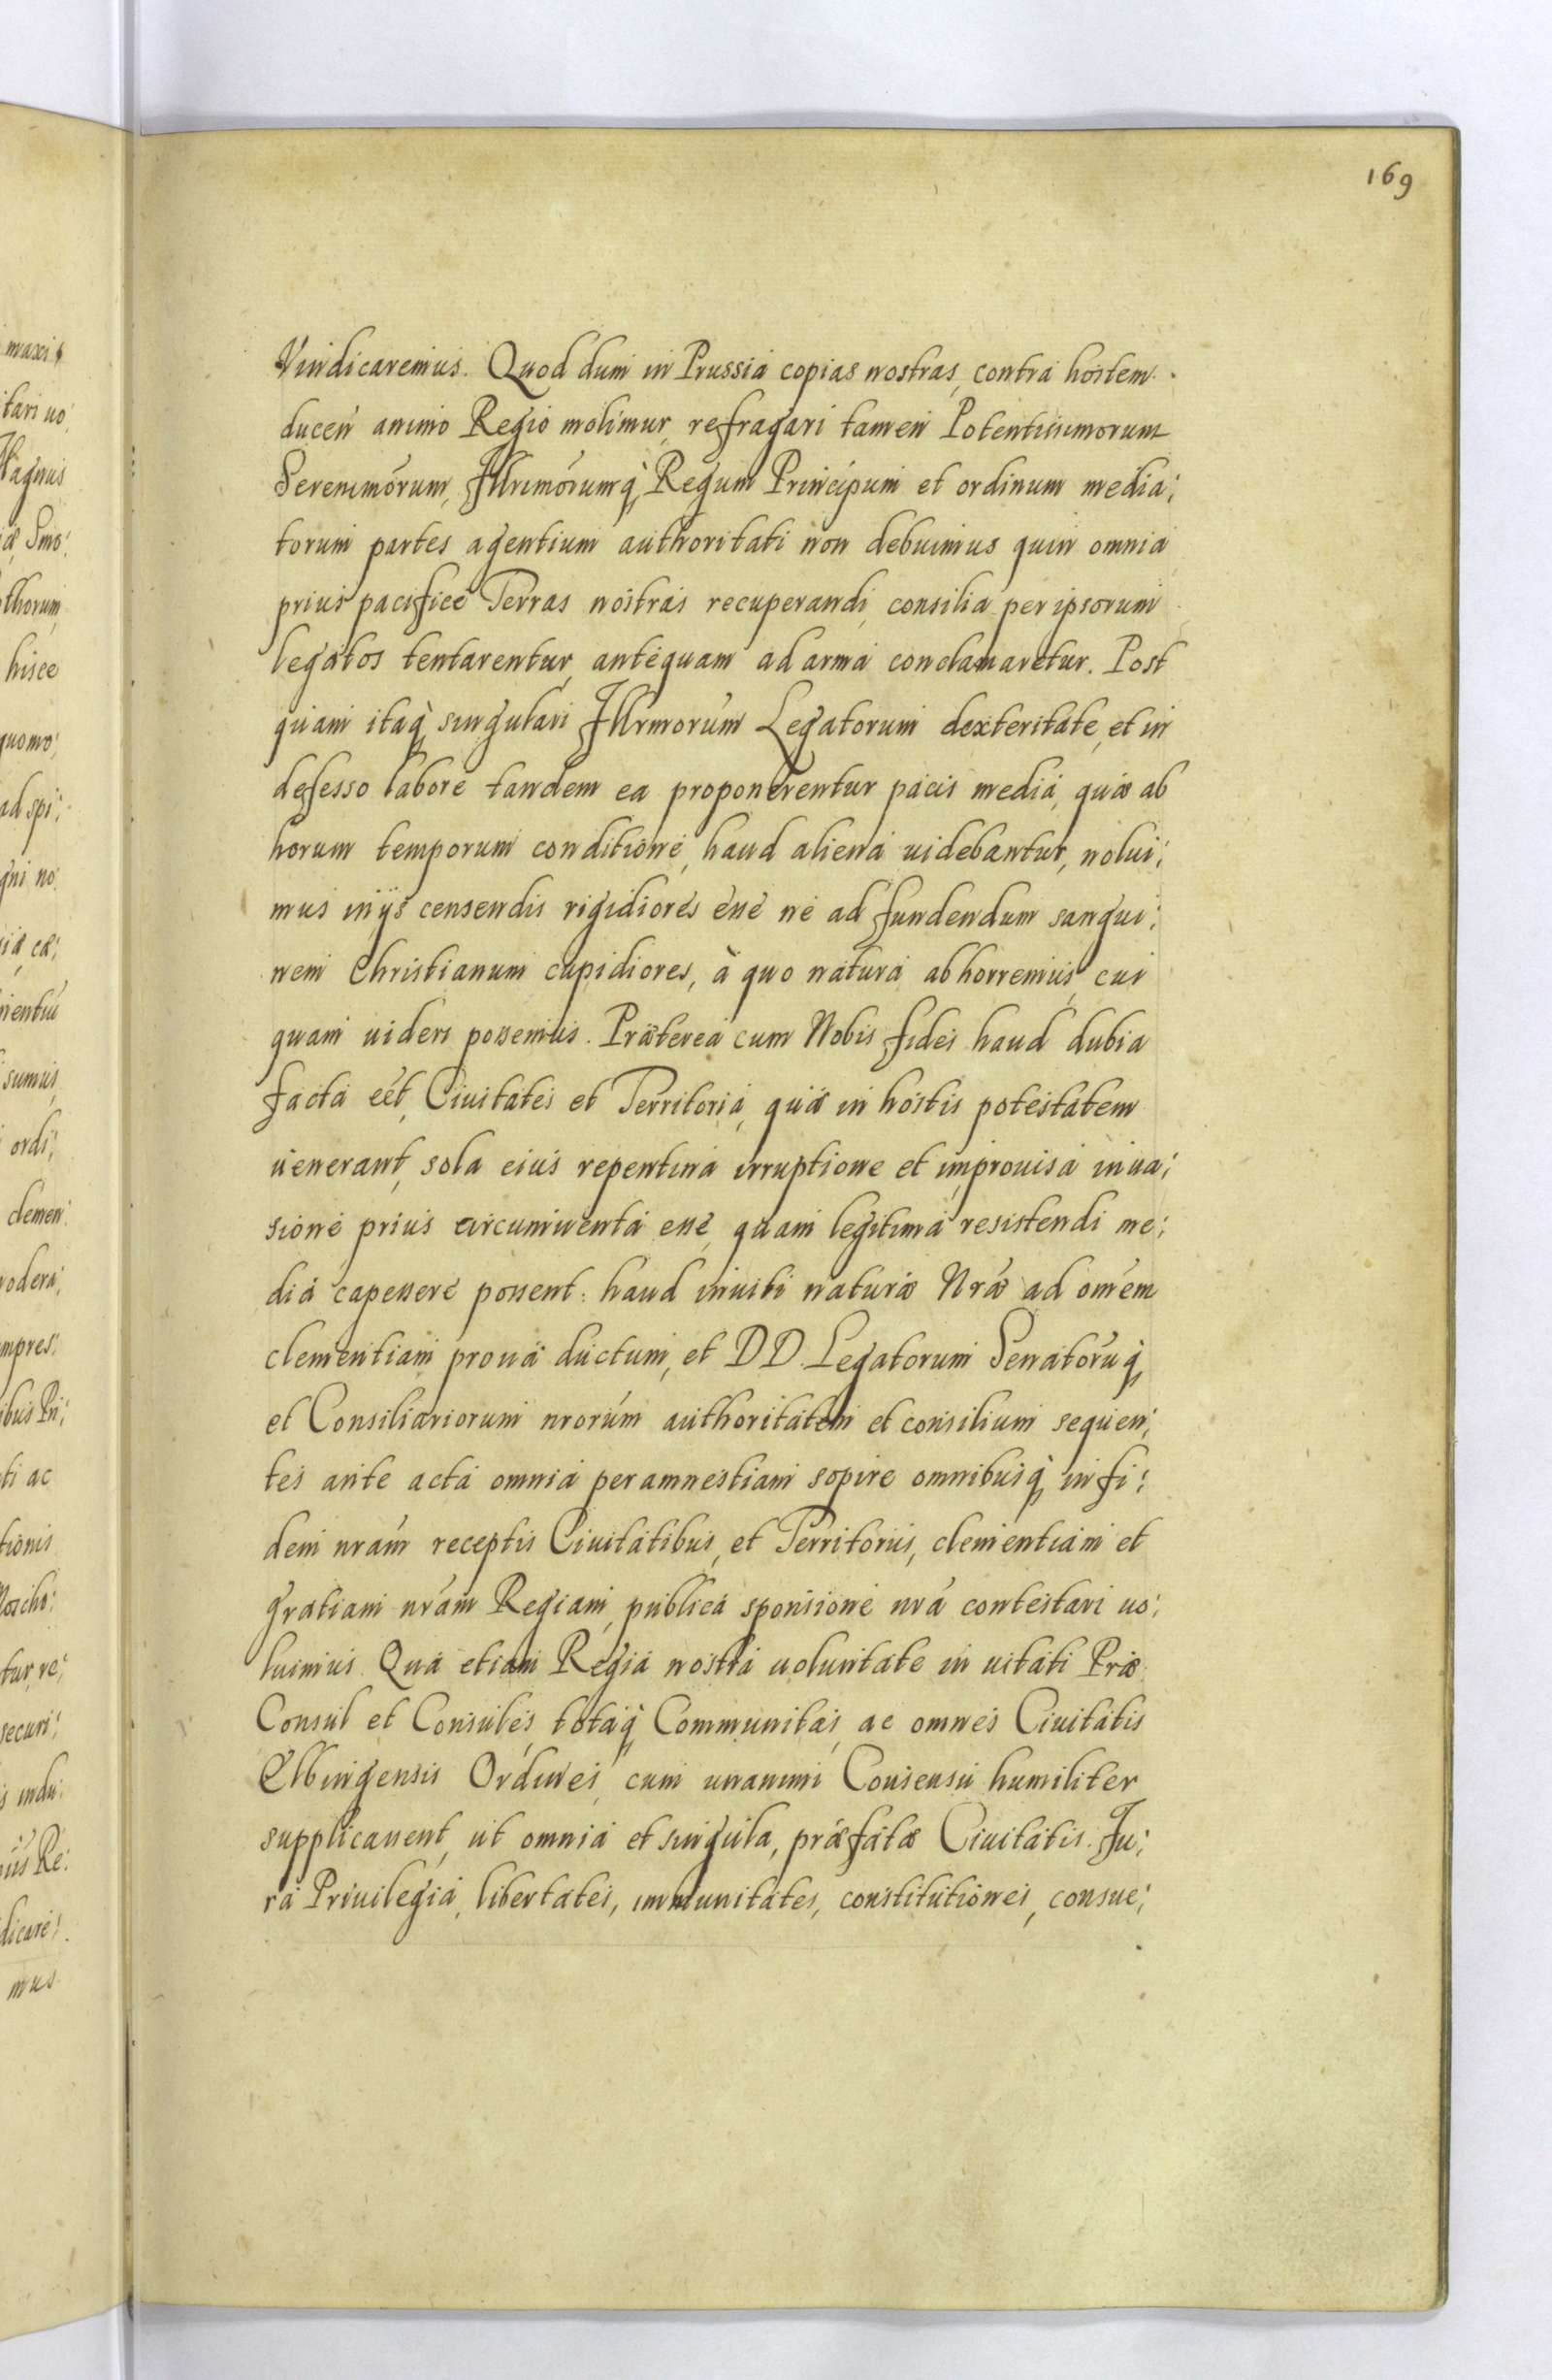 169
Vindicaremus. Quod dum in Prussia copias nostras, contra hostem
ducen animo Regio molimur, refragari tamen Potentissimorum
Serenmorum, Illrmorumq Regum Principum et ordinum media;
torum partes agentium authoritati non debuimus quin omnia
prius pacifice Terras nostras recuperandi, consilia per ipsorum
legatos tentarentur, antequam ad arma conclamaretur. Post
quam itaq singulari Illrmorum Legatorum dexteritate, et in
defesso labore tandem ea proponerentur pacis media, quæ ab
horum temporum conditione, haud aliena uidebantur, nolui;
mus in ijs censendis rigidiores esse ne ad fundendum sangui;
nem Christianum cupidiores, à quo natura abhorremus, cui
quam uideri possemus. Præterea cum Nobis fides haud dubia
facta eet, Ciuitates et Territoria, quæ in hostis potestatem
uenerant, sola eius repentina irruptione et improuisa inua;
sione prius circumuenta esse, quam legitima resistendi me;
dia capessere possent: haud inuiti naturæ Nræ ad omem
clementiam pronæ ductum, et D D. Legatorum Senatoruq
et Consiliariorum nrorum authoritatem et consilium sequen;
tes ante acta omnia per amnestiam sopire omnibusq in fi;
dem nram receptis Ciuitatibus, et Territoriis, clementiam et
gratiam nram Regiam, publica sponsione nra contestari uo;
luimus. Qua etiam Regia nostra uoluntate in uitati Præ
Consul et Consules, totaq Communitas, ac omnes Ciuitatis
Elbingensis Ordines, cum unanimi Consensu humiliter
supplicauent, ut omnia et singula, præfatæ Ciuitatis Ju;
ra Priuilegia, libertates, immunitates, constitutiones, consue;